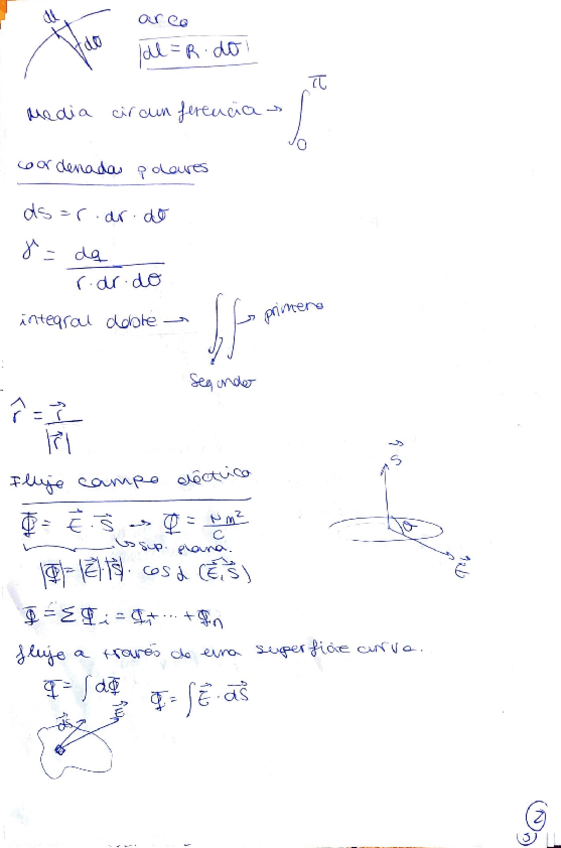 dl dθ arco
dl = R · dθ
Media circunferencia → ∫₀^π
coordenadas polares
ds = r · dr · dθ
γ = dq / (r · dr · dθ)
integral doble → ∫∫ → primero
segundo
r̂ = r⃗ / |r⃗|
Flujo campo eléctrico
Φ = E⃗ · S⃗ → Φ = N m² / C
↳ sup. plana.
|Φ| = |E⃗| · |S⃗| · cos α (E⃗, S⃗)
S⃗ θ E⃗
Φ = Σ Φi = Φ1 + ... + Φn
flujo a través de una superficie curva.
Φ = ∫ dΦ Φ = ∫ E⃗ · dS⃗
dS⃗ E⃗
2
3